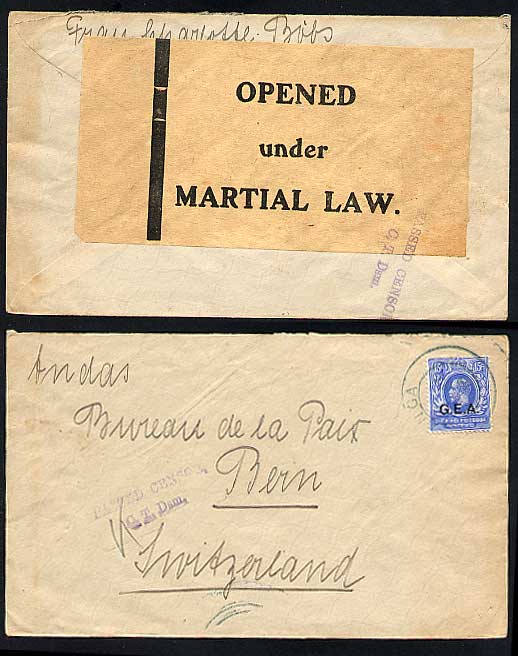 Frau Charlotte Böbs
OPENED
under
MARTIAL LAW.
PASSED CENSOR
C. T. Dsm.
An das
Bureau de la Paix
Bern
Switzerland
PASSED CENSOR
C. T. Dsm.
15c
15c
G.E.A.